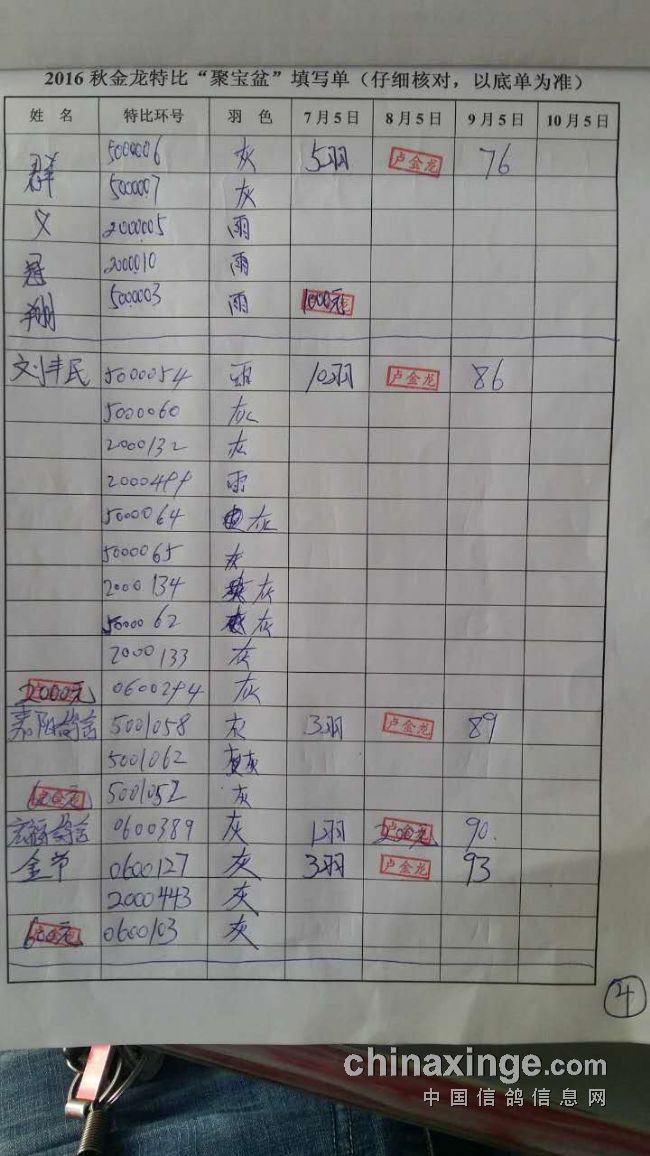 2016秋金龙特比“聚宝盆”填写单（仔细核对，以底单为准）
姓 名 特比环号 羽 色 7月5日 8月5日 9月5日 10月5日
群 5000006 灰 5羽 卢金龙 76
5000007 灰
义 2000005 雨
冠 2000010 雨
翔 5000003 雨 1000元
刘丰民 5000054 雨 10羽 卢金龙 86
5000060 灰
2000132 灰
2000499 雨
5000064 灰
5000065 灰
2000134 灰
500006 2 灰
2000133 灰
2000元 0600294 灰
鸽舍 5001058 灰 3羽 卢金龙 89
5001062 灰
600元 5001052 灰
鸽舍 0600389 灰 1羽 200元 90.
0600127 灰 3羽 卢金龙 93
2000443 灰
600元 0600103 灰
4
chinaxinge.com
中国信鸽信息网